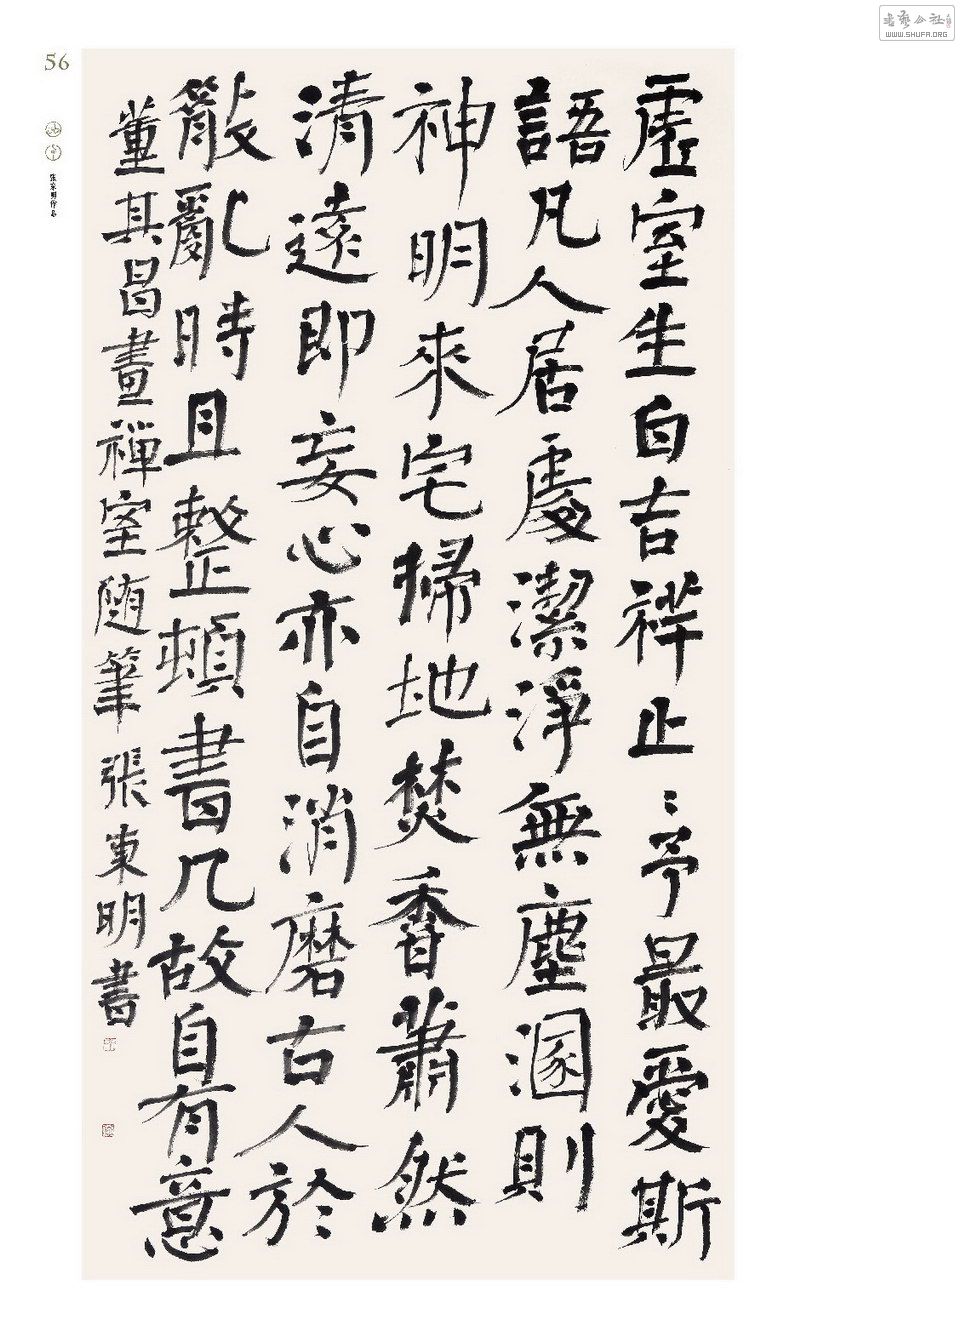 虛室生白吉祥止〻予最愛斯
語凡人居處潔淨無塵溷則
神明來宅掃地焚香蕭然
清遠即妄心亦自消磨古人於
散亂時且整頓書几故自有意
董其昌畫禪室随筆張東明書
56
张东明作品
书艺公社
WWW.SHUFA.ORG